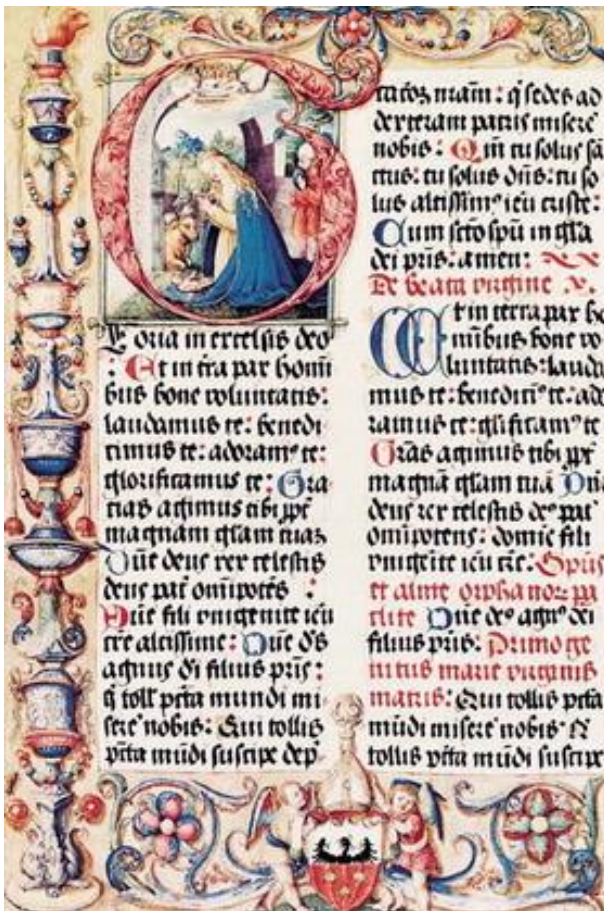 G
l oria in excelsis deo
: Et in t̄ra pax homi
bus bone voluntatis:
laudamus te: benedi
cimus te: adoram⁹ te:
glorificamus te: Gra
tias agimus tibi ꝓp̄t
magnam gl̄am tuaꝫ
Dn̄e deus rex celestis
deus pat̄ om̄ipotēs :
Dn̄e fili vnigenite ie̅u
xr̄e altissime: Dn̄e d̄s
agnus d̄i filius pr̄is:
q̄ toll' pctā mundi mi
sere nobis: Qui tollis
pctā mūdi suscipe dep̄
tiōꝫ nr̄am: q̄ sedes ad
dexteram patris misere
nobis: Qm̄ tu solus sā
ctus: tu solus dn̄s: tu so
lus altissim⁹ ie̅u criste:
Cum sc̄to spū in gl̄a
dei pr̄is: amen:
De beata virgine v.
Et in terra pax ho
minibus bone vo
luntatis: lauda
mus te: benedici⁹ te: ado
ramus te: gl̄ificam⁹ te
Gr̄as agimus tibi ꝓp̄t
magnā gl̄am tuā Dn̄e
deus rex celestis de⁹ pat̄
om̄ipotens: domīe fili
vnigēite ie̅u xr̄e: Spūs
et alme orphanoꝝ pa
clite Dn̄e de⁹ agn⁹ dei
filius pr̄is: Primoge
nitus marie virginis
matris: Qui tollis pctā
mūdi misere nobis Q
tollis pctā mūdi suscipe